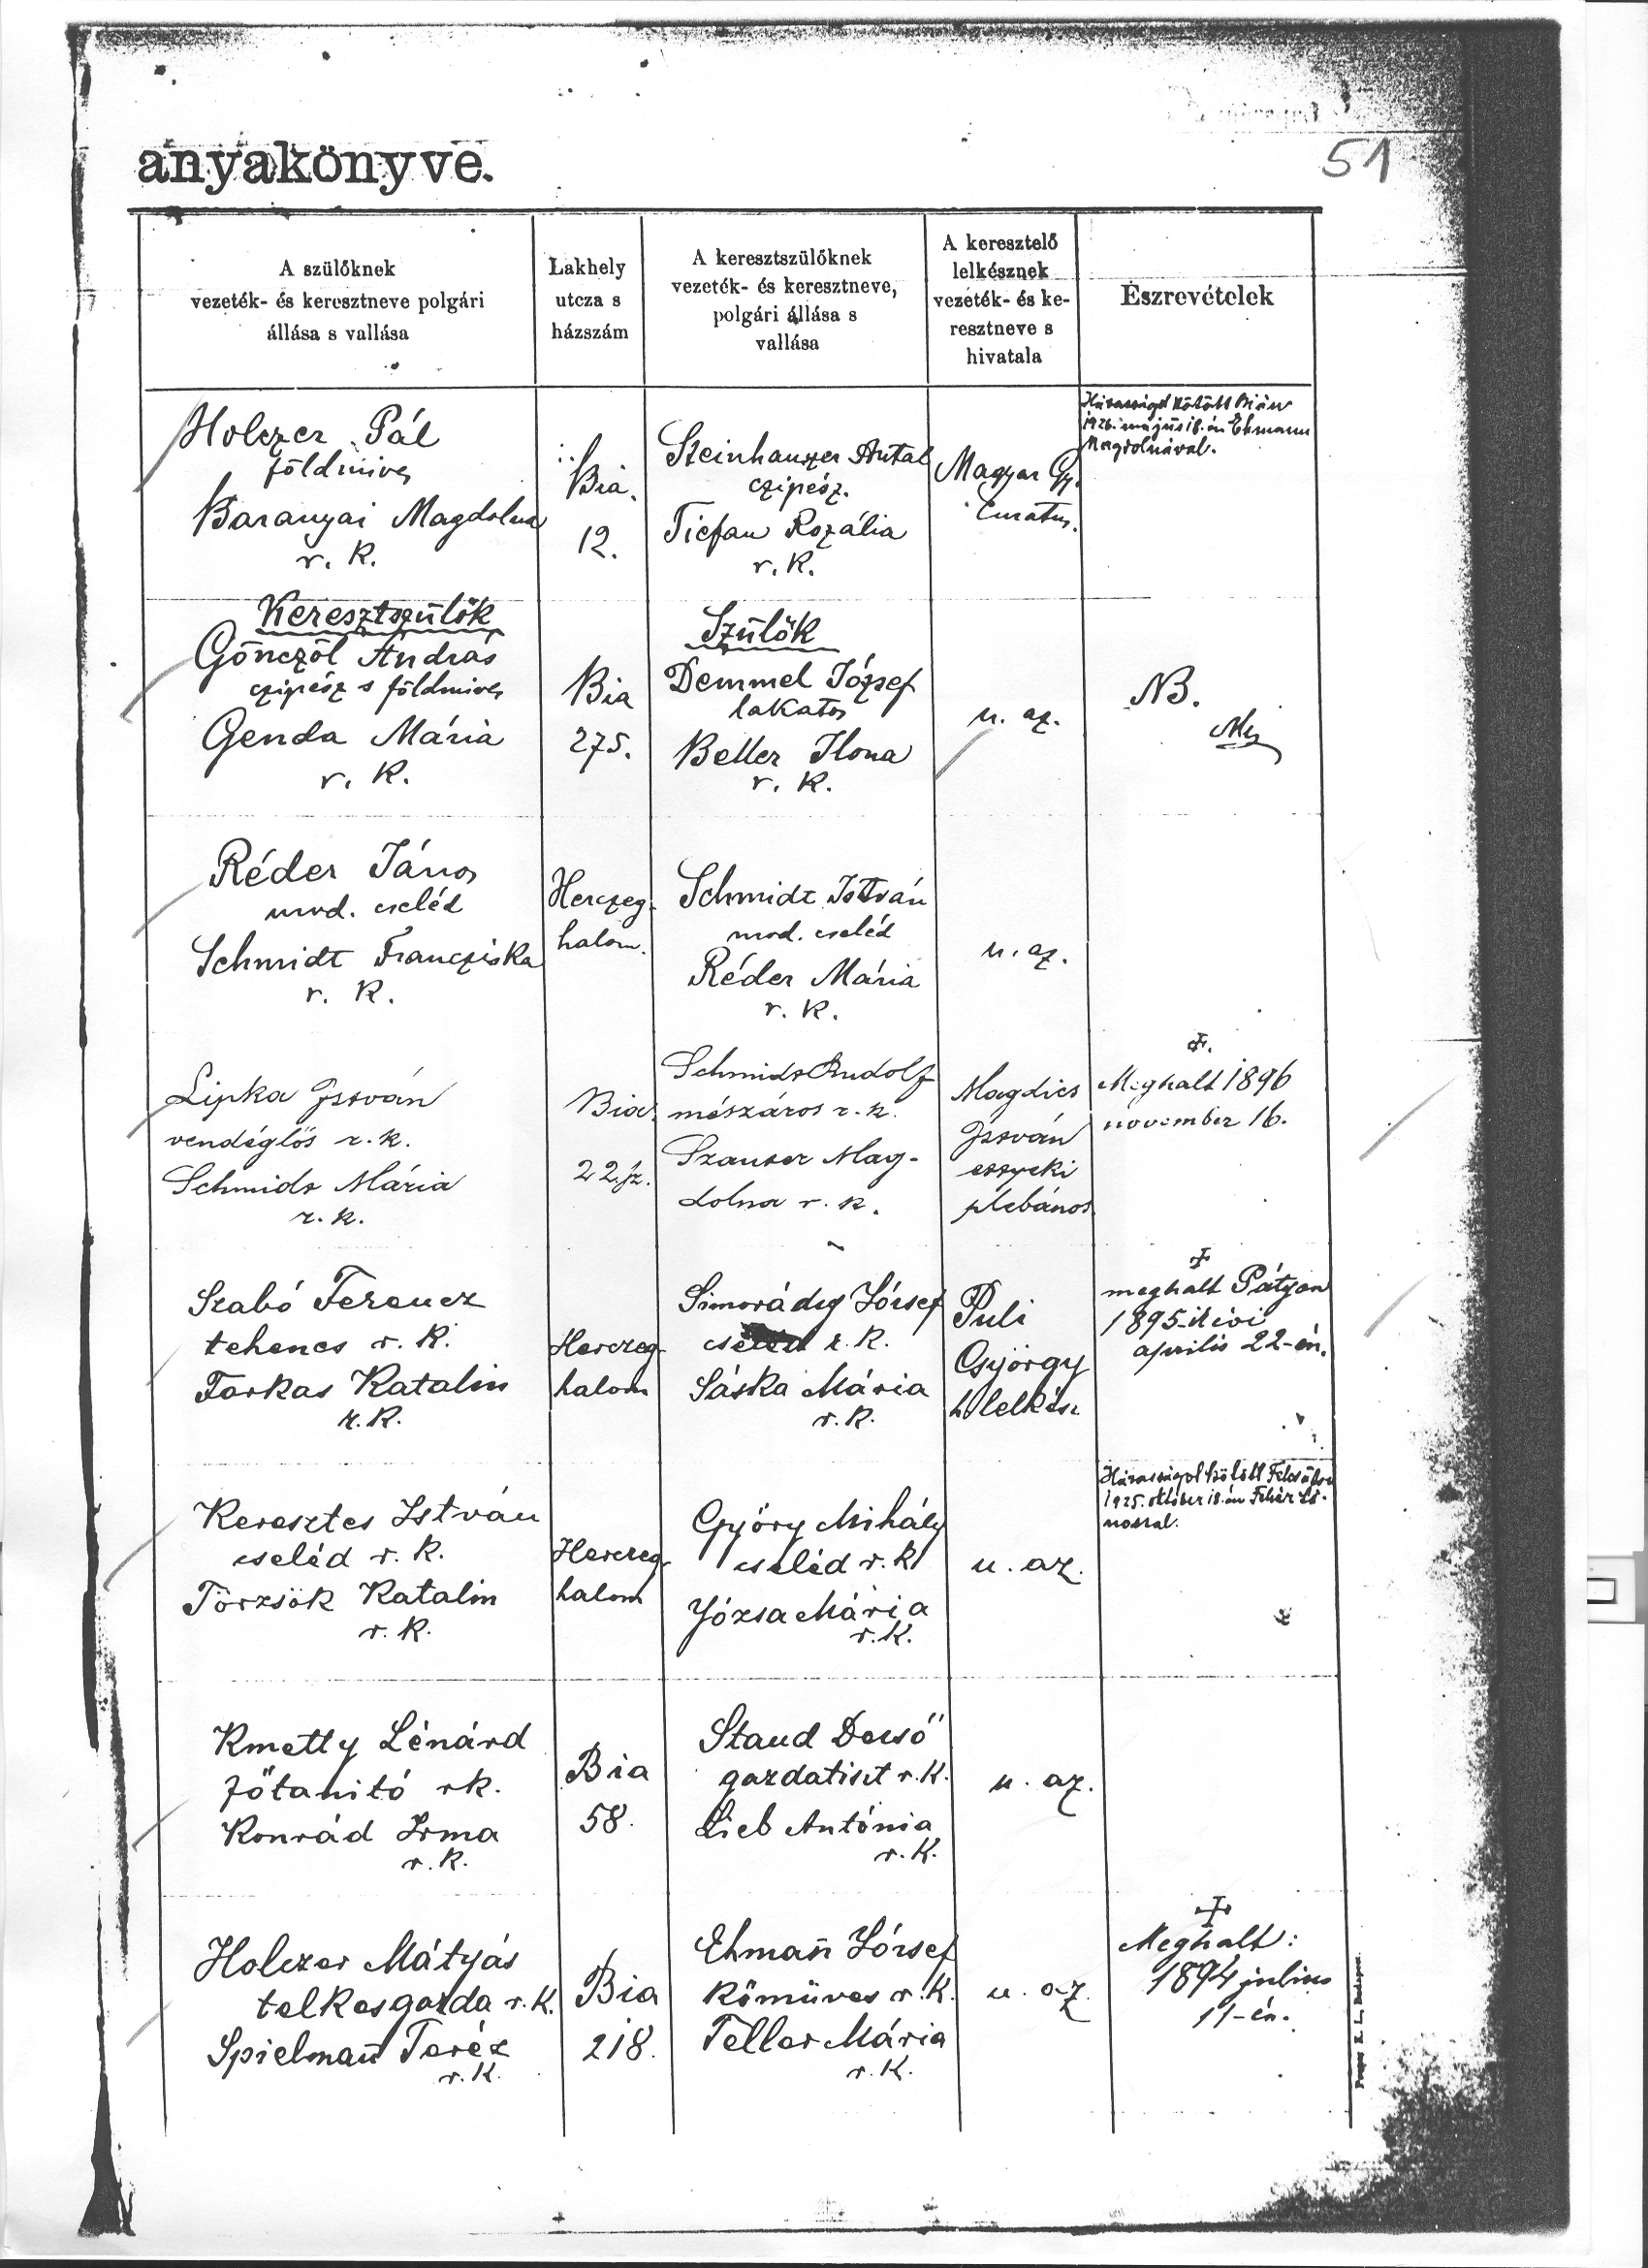 51
anyakönyve.
A szülőknek
vezeték- és keresztneve polgári
állása s vallása
Lakhely
utcza s
házszám
A keresztszülőknek
vezeték- és keresztneve,
polgári állása s
vallása
A keresztelő
lelkésznek
vezeték- és ke-
resztneve s
hivatala
Észrevételek
Holczer Pál
földmives
Baranyai Magdolna
r. k.
Bia.
12.
Steinhauzer Antal
czipész.
Tiefau Rozália
r. k.
Magyar Gy.
Curatus.
Házasságot kötött Bián
1926. május 18.-án Ehmann
Magdolnával.
Keresztszülők
Gönczöl András
czipész s földmives
Genda Mária
r. k.
Bia
275.
Szülők
Demmel József
lakatos
Beller Ilona
r. k.
u. az.
NB.
Réder János
urod. cseléd
Schmidt Francziska
r. k.
Herczeg-
halom.
Schmidt István
urod. cseléd
Réder Mária
r. k.
u. az.
Lipka István
vendéglős r. k.
Schmidt Mária
r. k.
Bia.
22.
Schmidt Rudolf
mészáros r. k.
Szauser Mag-
dolna r. k.
Magdics
István
plébános
Meghalt 1896
november 16.
Szabó Ferencz
tehenes r. k.
Farkas Katalin
r. k.
Herczeg-
halom
Simorády József
cseléd r. k.
Sáska Mária
r. k.
Puli
György
h lelkész
meghalt Pátyon
1895-ik évi
április 22-én.
Keresztes István
cseléd r. k.
Törzsök Katalin
r. k.
Herczeg-
halom
Győry Mihály
cseléd r. k
Józsa Mária
r. k.
u. az.
Házasságot kötött
1925. október 18.-án Fehér
Kmetty Lénárd
főtanitó rk.
Konrád Irma
r. k.
Bia
58.
Staud Dezső
gazdatiszt r. k.
Lieb Antónia
r. k.
u. az.
Holczer Mátyás
telkesgazda r. k.
Spielmañ Teréz
r. k.
Bia
218.
Ehmañ József
kőmüves r. k.
Teller Mária
r. k.
u. az.
Meghalt:
1894 julius
11-én.